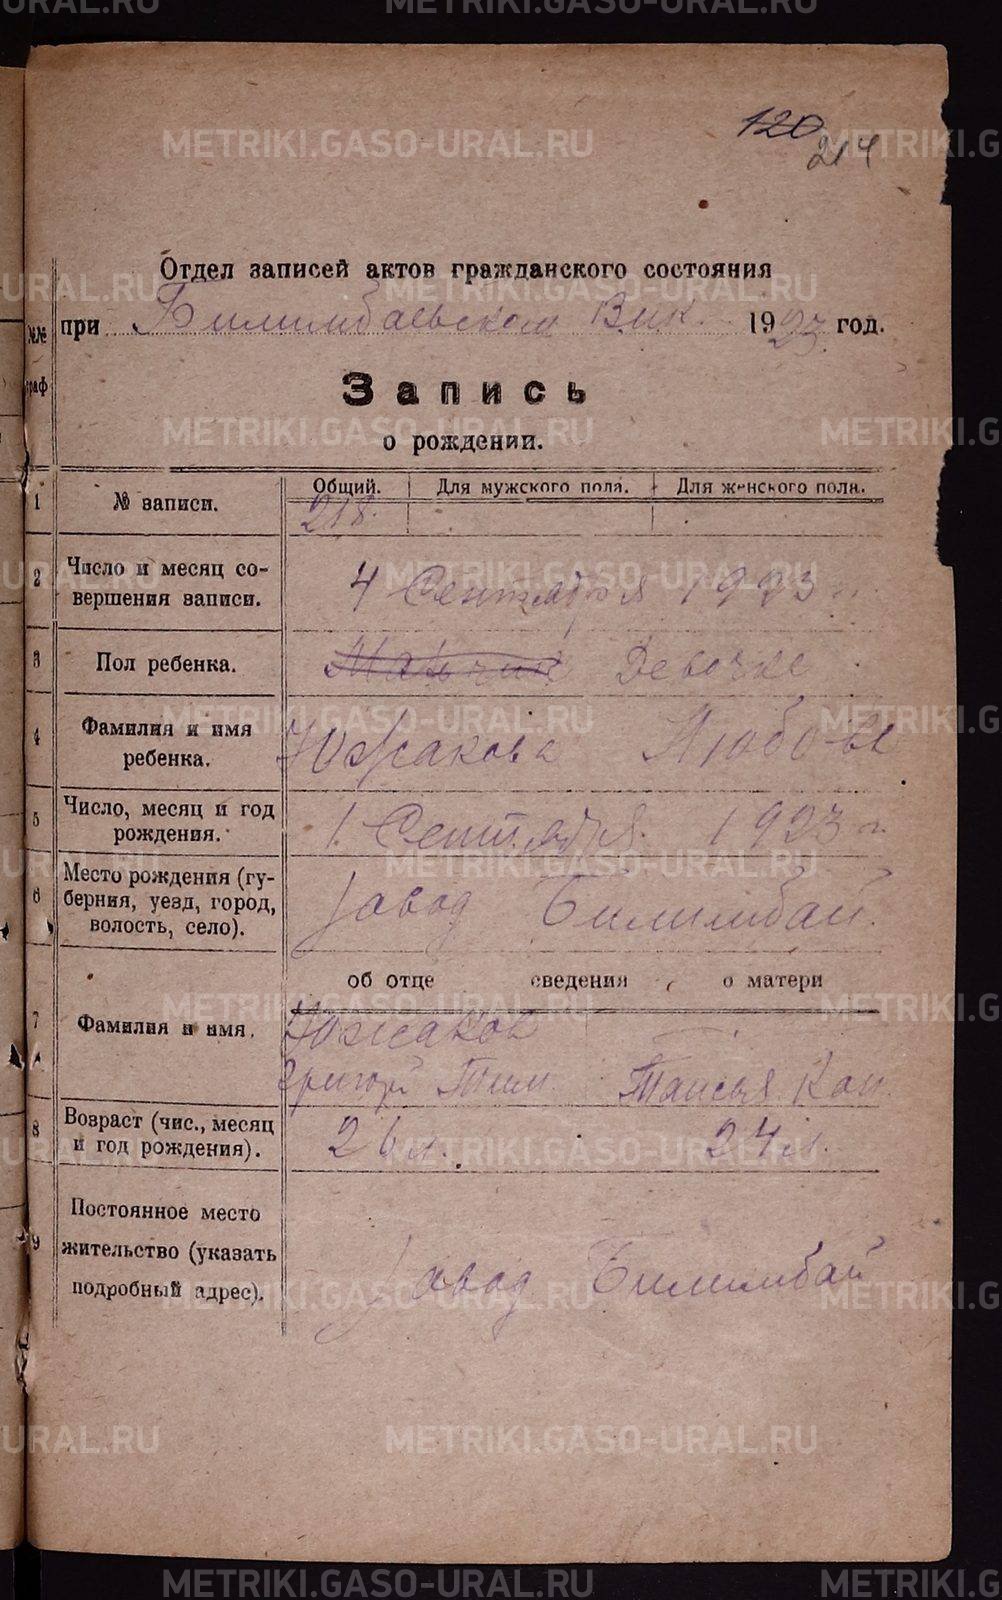 120
214
Отдел записей актов гражданского состояния
при Билимбаевском Вик. 1923 год.
№№ граф
Запись
о рождении.
1 № записи. Общий. Для мужского пола. Для женского пола.
218.
2 Число и месяц со-
вершения записи. 4 Сентября 1923 г.
3 Пол ребенка. Мальчик Девочке
4 Фамилия и имя
ребенка. Южакова Любовь
5 Число, месяц и год
рождения. 1 Сентября 1923 г.
6 Место рождения (гу-
берния, уезд, город,
волость, село). завод Билимбай.
об отце сведения о матери
7 Фамилия и имя. Южаков
Григорий Тим Таисья Кон
8 Возраст (чис., месяц
и год рождения). 26 л. 24 л.
9 Постоянное место
жительство (указать
подробный адрес). завод Билимбай
METRIKI.GASO-URAL.RU